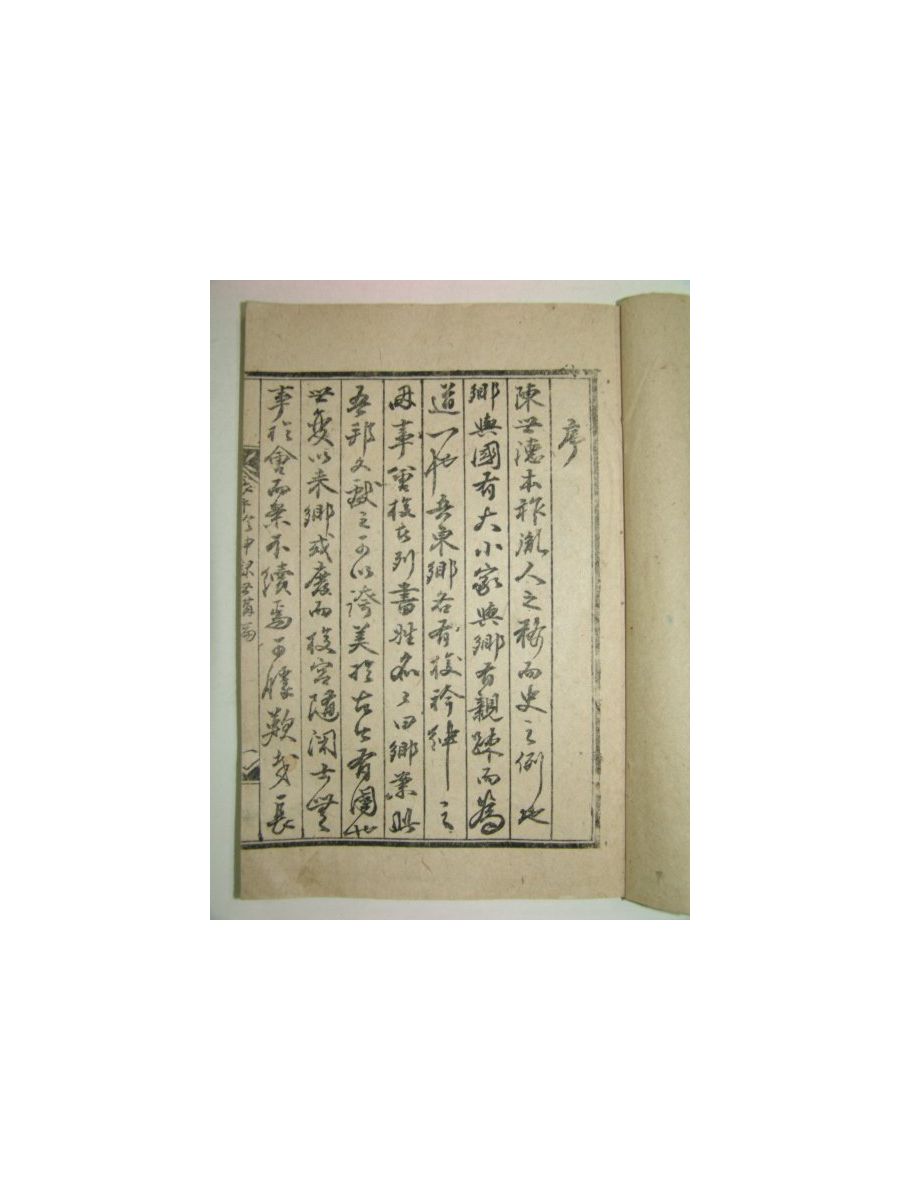 序
陳世德本祚胤人之務而史之例也
鄉與國有大小家與鄉有親疎而為
道一也吾東鄉各有校衿紳之
毋事會校右列書姓名曰鄉案此
吾邦文獻之可以誇美於古今有國也
世變以來鄉或廢而校宮隨閑士無
事於會而案不續焉可勝歎哉長